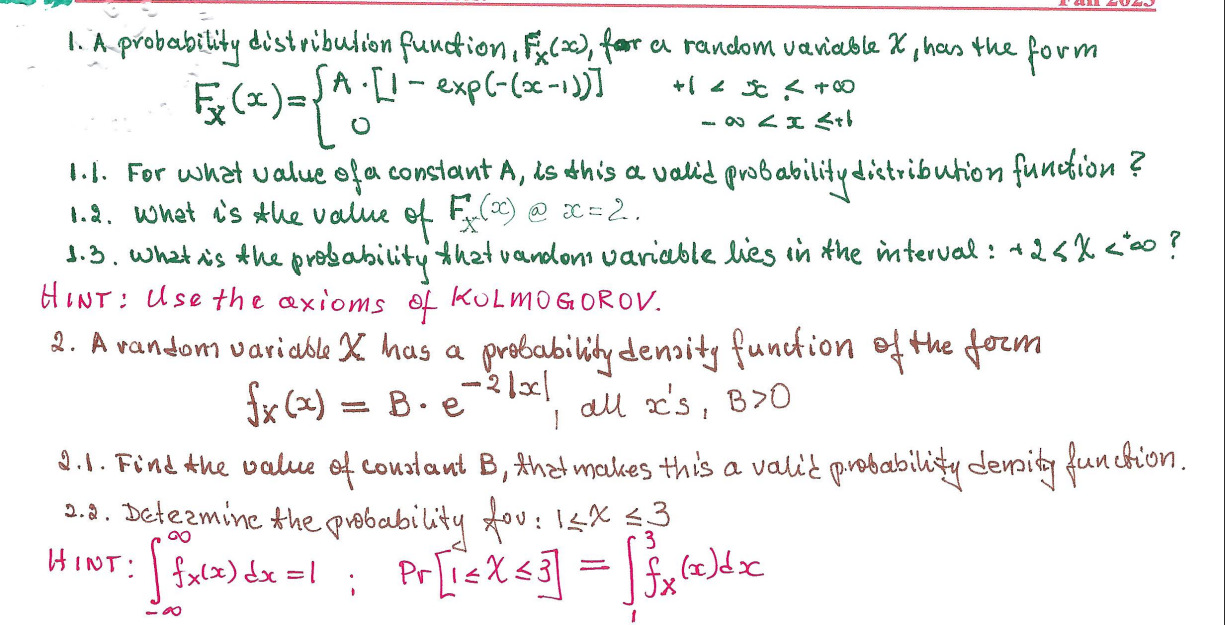 Fall 2023
1. A probability distribution function, Fₓ(x), for a random variable X, has the form
Fₓ(x) = { A·[1 - exp(-(x-1))]   +1 < x < +∞
0   -∞ < x ≤ +1
1.1. For what value of a constant A, is this a valid probability distribution function?
1.2. What is the value of Fₓ(x) @ x=2.
1.3. What is the probability that random variable lies in the interval: +2 ≤ X < +∞?
HINT: Use the axioms of KOLMOGOROV.
2. A random variable X has a probability density function of the form
fₓ(x) = B·e^(-2|x|), all x's, B>0
2.1. Find the value of constant B, that makes this a valid probability density function.
2.2. Determine the probability for: 1≤X≤3
HINT: ∫_{-∞}^{∞} fₓ(x) dx = 1 ; Pr[1≤X≤3] = ∫_{1}^{3} fₓ(x) dx